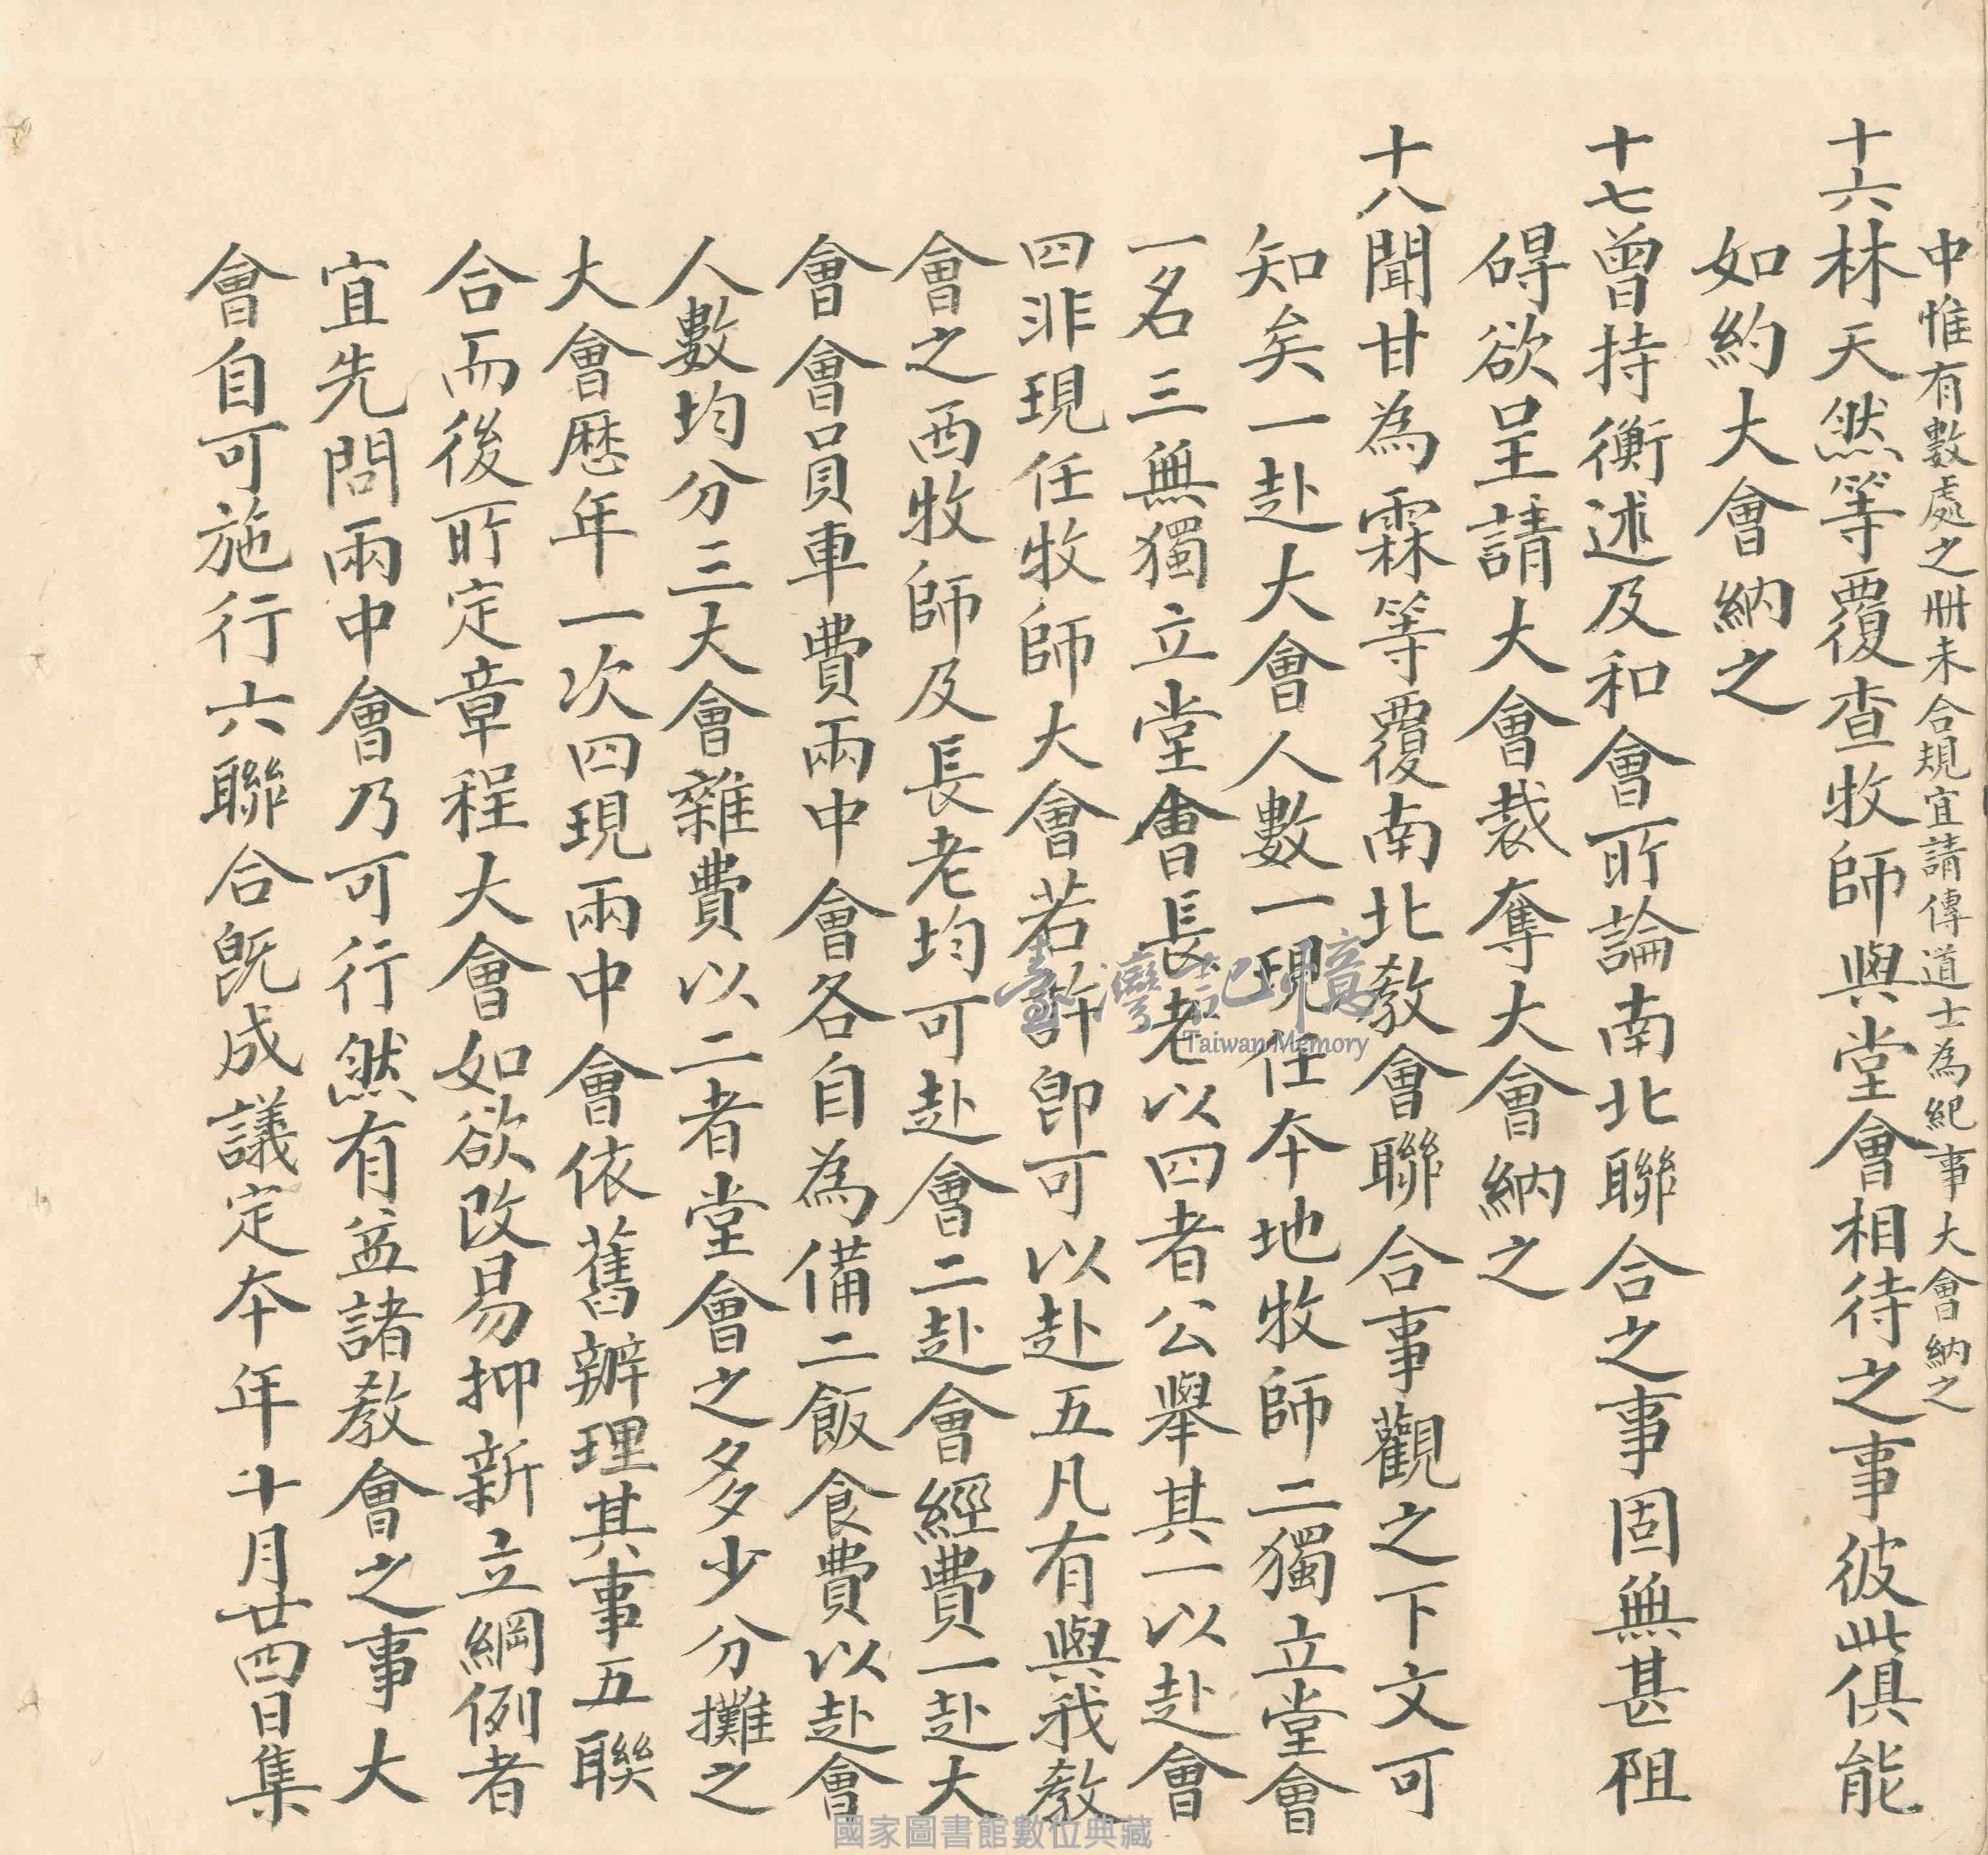 中惟有數處之冊未合規宜請傳道士為紀事大會納之
十六林天然等覆查牧師與堂會相待之事彼此俱能
如約大會納之
十七曾持衡述及和會所論南北聯合之事固無甚阻
碍欲呈請大會裁奪大會納之
十八聞甘為霖等覆南北教會聯合事觀之下文可
知矣一赴大會人數一現任本地牧師二獨立堂會
一名三無獨立堂會長老以四者公舉其一以赴會
四非現任牧師大會若許即可以赴五凡有與我教
會之西牧師及長老均可赴會二赴會經費一赴大
會會員車費兩中會各自為備二飯食費以赴會
人數均分三大會雜費以二者堂會之多少分攤之
大會歷年一次四現兩中會依舊辦理其事五聯
合而後所定章程大會如欲改易抑新立綱例者
宜先問兩中會乃可行然有益諸教會之事大
會自可施行六聯合既成議定本年十月廿四日集
臺灣記憶
Taiwan Memory
國家圖書館數位典藏